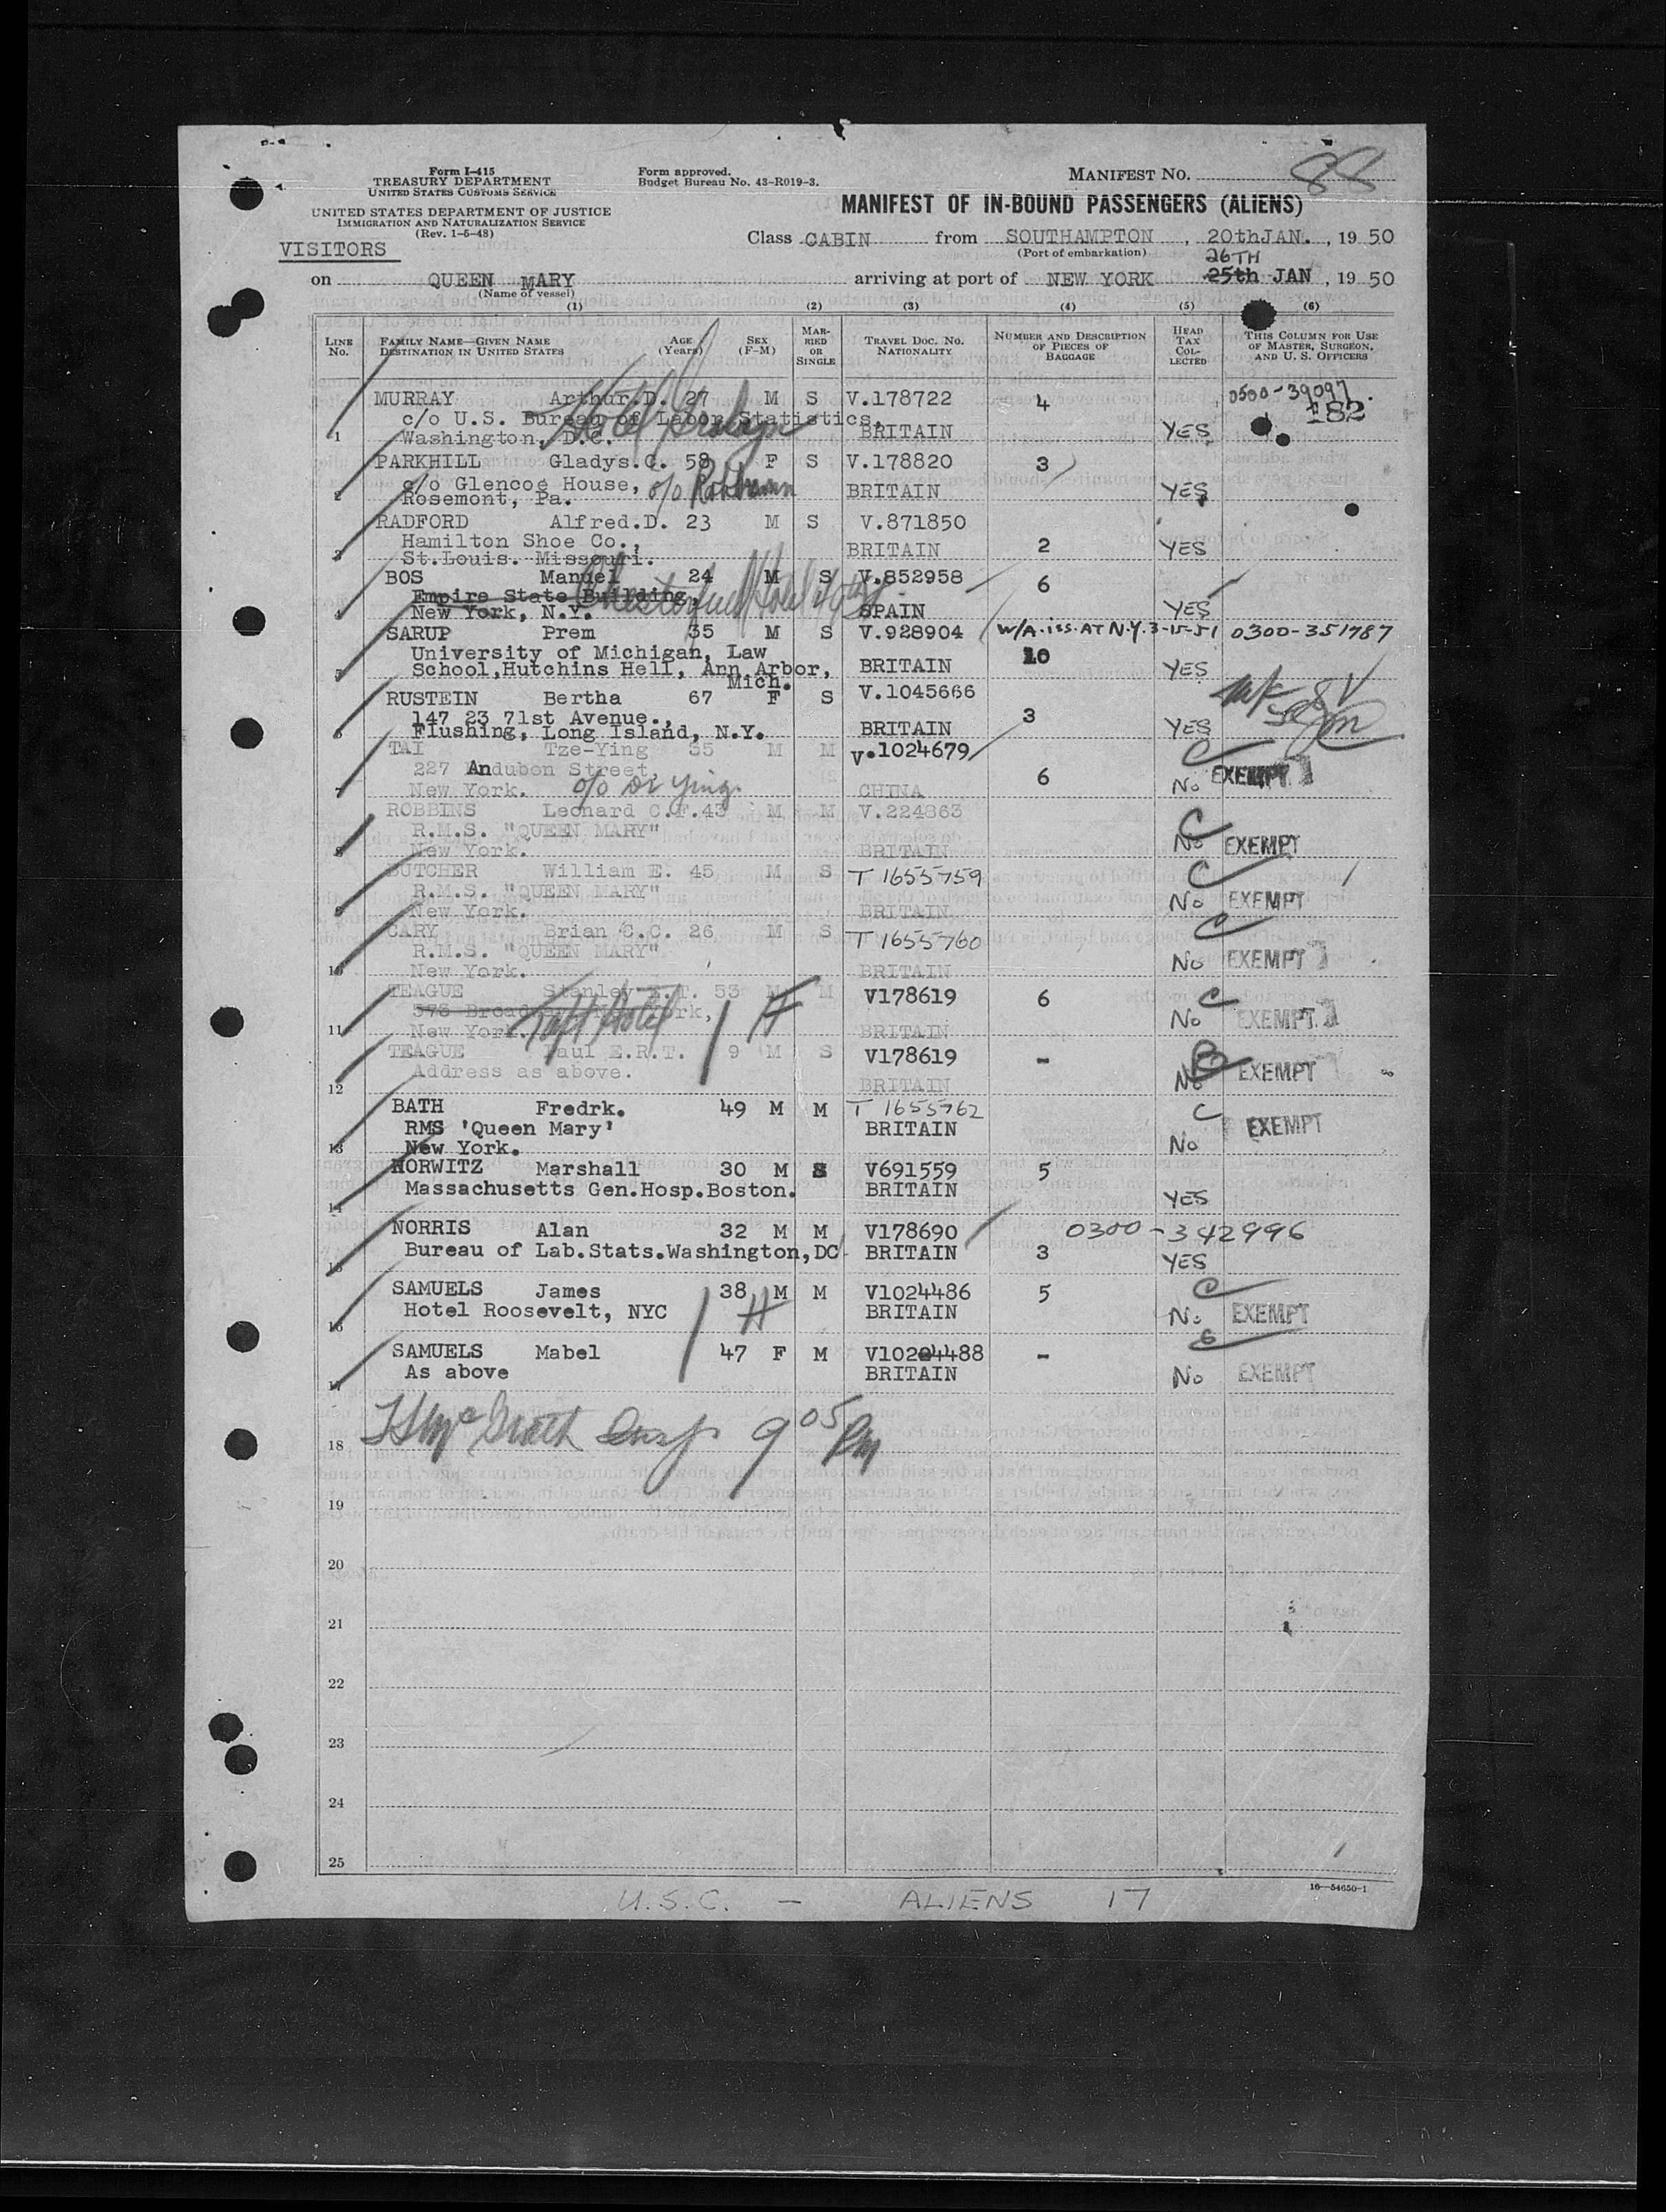 Form I-415
TREASURY DEPARTMENT
UNITED STATES CUSTOMS SERVICE
UNITED STATES DEPARTMENT OF JUSTICE
IMMIGRATION AND NATURALIZATION SERVICE
(Rev. 1-5-48)
Form approved.
Budget Bureau No. 43-R019-3.
MANIFEST NO. 88
MANIFEST OF IN-BOUND PASSENGERS (ALIENS)
VISITORS
Class CABIN from SOUTHAMPTON, 20thJAN., 1950
(Port of embarkation)
26TH
on QUEEN MARY arriving at port of NEW YORK 25th JAN, 1950
(Name of vessel)
(1) (2) (3) (4) (5) (6)
LINE No. FAMILY NAME—GIVEN NAME DESTINATION IN UNITED STATES AGE (Years) SEX (F-M) MARRIED OR SINGLE TRAVEL DOC. NO. NATIONALITY NUMBER AND DESCRIPTION OF PIECES OF BAGGAGE HEAD TAX COLLECTED THIS COLUMN FOR USE OF MASTER, SURGEON, AND U. S. OFFICERS
MURRAY Arthur.D. 27 M S V.178722 4 0500-39097
c/o U.S. Bureau of Labor Statistics, 182
1 Washington, D.C. Hotel BRITAIN YES
PARKHILL Gladys.C. 58 F S V.178820 3
c/o Glencoe House, c/o
2 Rosemont, Pa. BRITAIN YES
RADFORD Alfred.D. 23 M S V.871850
Hamilton Shoe Co., BRITAIN 2 YES
3 St.Louis. Missouri.
BOS Manuel 24 M S V.852958 6
Empire State Building, Chesterfield Hotel
4 New York, N.Y. SPAIN YES
SARUP Prem 35 M S V.928904 W/A.iss.AT N.Y.3-15-51 0300-351787
University of Michigan, Law 10
5 School,Hutchins Hell, Ann Arbor, BRITAIN YES
Mich.
RUSTEIN Bertha 67 F S V.1045666
147 23 71st Avenue., 3
6 Flushing, Long Island, N.Y. BRITAIN YES
TAI Tze-Ying 35 M M V.1024679 C
227 Andubon Street, 6 EXEMPT
7 New York. c/o Dr Ying. CHINA No
ROBBINS Leonard C.T.43 M M V.224863 C
R.M.S. "QUEEN MARY"
8 New York. BRITAIN No EXEMPT
BUTCHER William E. 45 M S T 1655759 C
R.M.S. "QUEEN MARY"
9 New York. BRITAIN No EXEMPT
CARY Brian C.C. 26 M S T 1655760 C
R.M.S. "QUEEN MARY"
10 New York. BRITAIN No EXEMPT
TEAGUE Stanley 53 M M V178619 6 C
New York,
11 New York. Taft Hotel BRITAIN No EXEMPT
TEAGUE Paul E.R.T. 9 M S V178619 - B
12 Address as above. BRITAIN No EXEMPT
BATH Fredrk. 49 M M T 1655762 C
RMS 'Queen Mary' BRITAIN EXEMPT
13 New York. No
HORWITZ Marshall 30 M S V691559 5
14 Massachusetts Gen.Hosp.Boston. BRITAIN YES
NORRIS Alan 32 M M V178690 0300-342996
15 Bureau of Lab.Stats.Washington,DC BRITAIN 3 YES
SAMUELS James 38 M M V1024486 5 C
16 Hotel Roosevelt, NYC BRITAIN No EXEMPT
SAMUELS Mabel 47 F M V1024488 - C
17 As above BRITAIN No EXEMPT
18 Insp 9 05 Pm
19
20
21
22
23
24
25
16-54650-1
U.S.C. - ALIENS 17